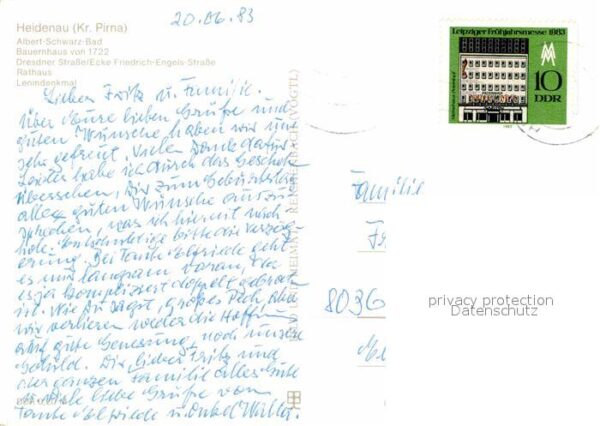 20.06.83
Heidenau (Kr. Pirna)
Albert-Schwarz-Bad
Bauernhaus von 1722
Dresdner Straße/Ecke Friedrich-Engels-Straße
Rathaus
Lenindenkmal
Lieber Fritz u. Familie.
Über Eure lieben Grüße und
guten Wünsche haben wir uns
sehr gefreut. Vielen Dank dafür.
Leider habe ich durch das Geschehen
übersehen, Dir zum Geburtstag
alle guten Wünsche auszu-
sprechen, was ich hiermit nach-
hole. Entschuldige bitte die Verzöge-
rung. Bei Tante Elfriede geht
es nur langsam voran, da
es ja kompliziert doppelt gebrochen
ist. Wie Du sagst, großes Pech. Aber
wir verlieren weder die Hoffnung
auf gute Genesung, noch unsere
Geduld. Dir lieber Fritz und
der ganzen Familie alles Gute
u. viele liebe Grüße von
Tante Elfriede u. Onkel Walter.
Leipziger Frühjahrsmesse 1983
MM
10
DDR
Familie
8036
privacy protection
Datenschutz